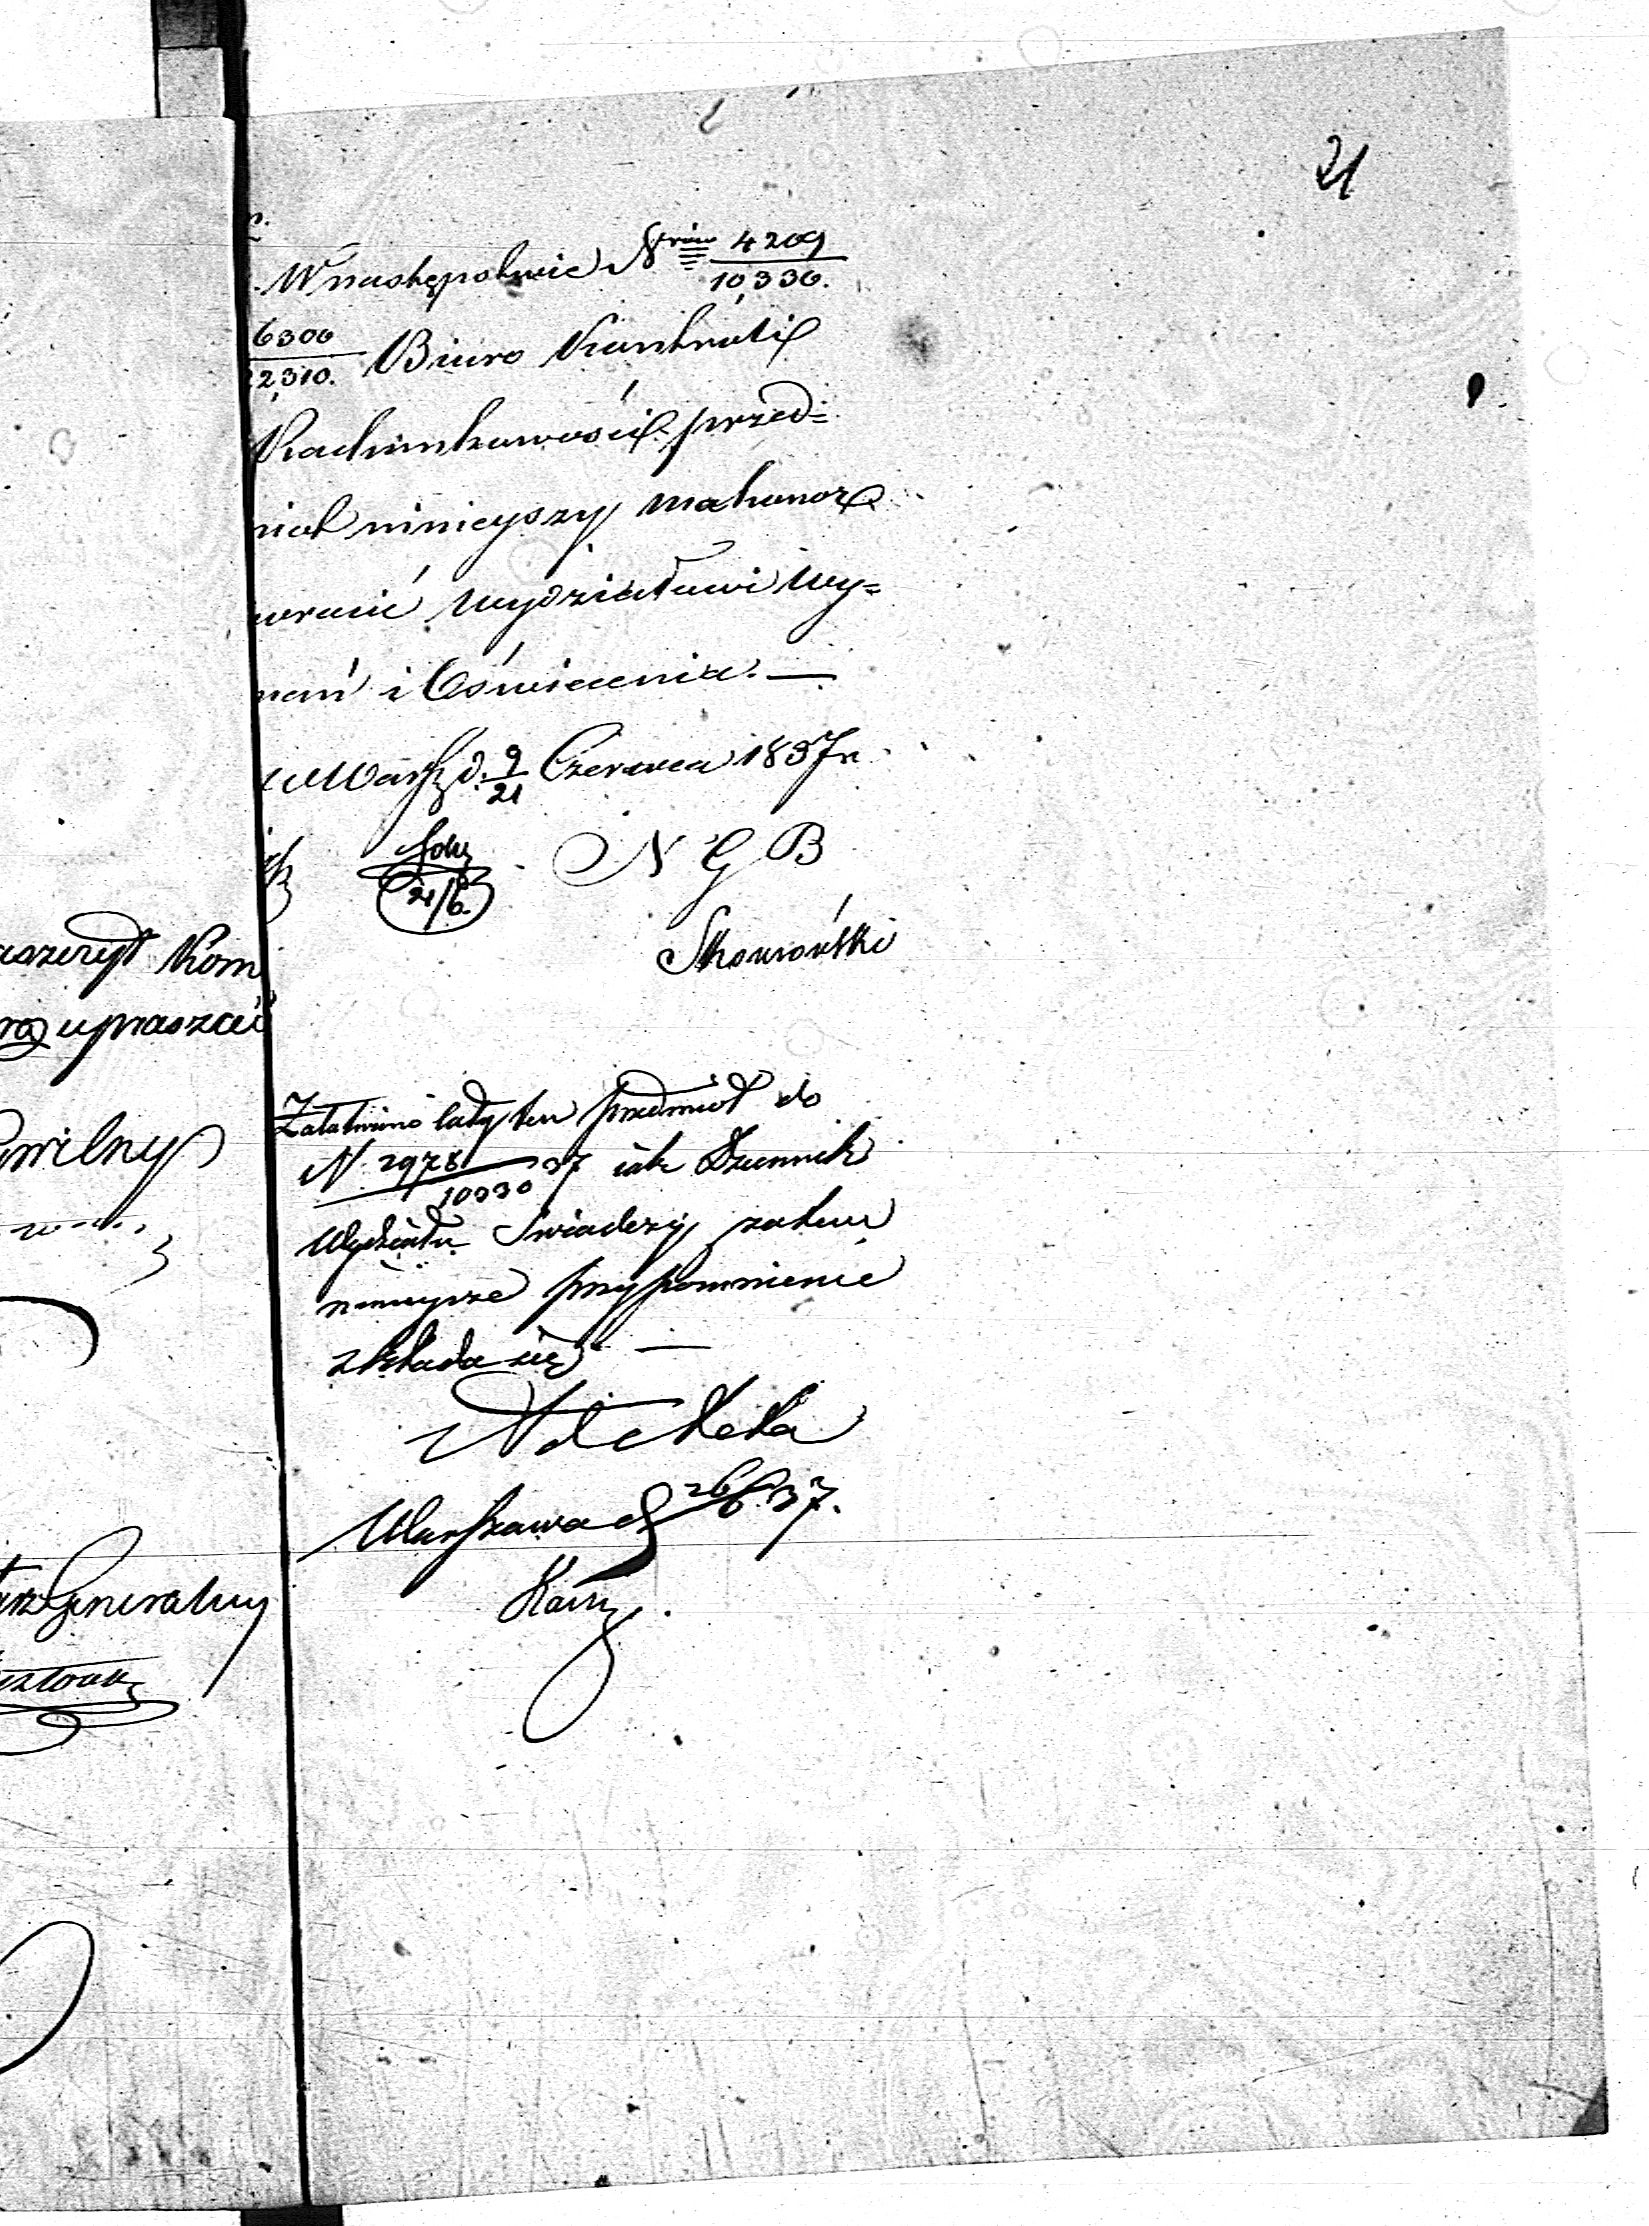 21
W następstwie Nrów 4209/10,330.
6300/22,310. Biuro Kontroli
Rachunkowości przed=
miot niniejszy ma honor
wrócić Wydziałowi Wy=
znań i Oświecenia. —
w Warsz. d. 9/21 Czerwca 1837 r.
21/6. N G B
Skowroński
Załatwiono cały ten przedmiot do
N. 2978/10330 37 jak Dziennik
Wydziału świadczy, zatem
niniejsze przypomnienie
składa się —
Warszawa d. 26/6 37.
aszeryt Kom
upraszać
Cywilny
Generalny